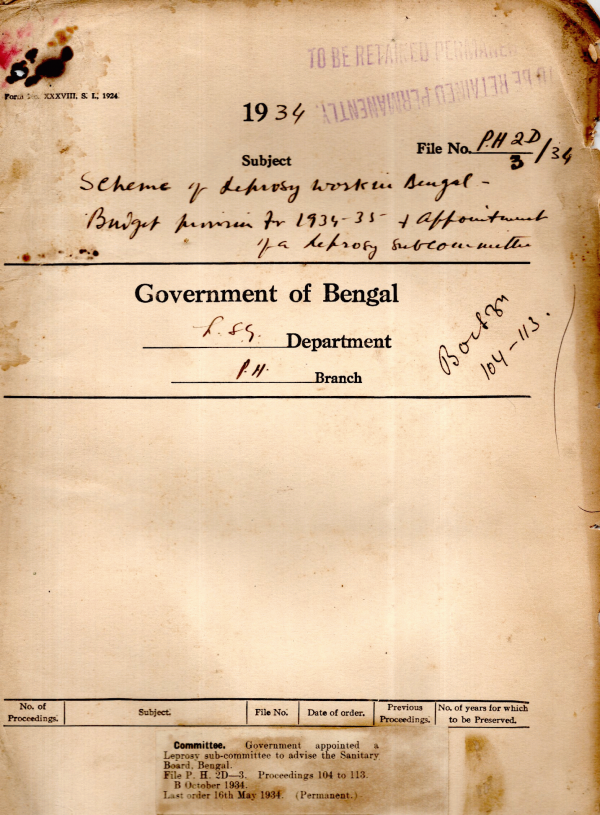 TO BE RETAINED PERMANE
TO BE RETAINED PERMANENTLY.
Form No. XXXVIII, S. I., 1924.
1934
File No. P.H 2D/3/34
Subject
Scheme of Leprosy work in Bengal -
Budget provision for 1934-35 & Appointment
of a Leprosy subcommittee
Government of Bengal
L.S.G. Department
P.H. Branch
104-113.
No. of Proceedings. Subject. File No. Date of order. Previous Proceedings. No. of years for which to be Preserved.
Committee. Government appointed a
Leprosy sub-committee to advise the Sanitary
Board, Bengal.
File P. H. 2D—3. Proceedings 104 to 113.
B October 1934.
Last order 16th May 1934. (Permanent.)